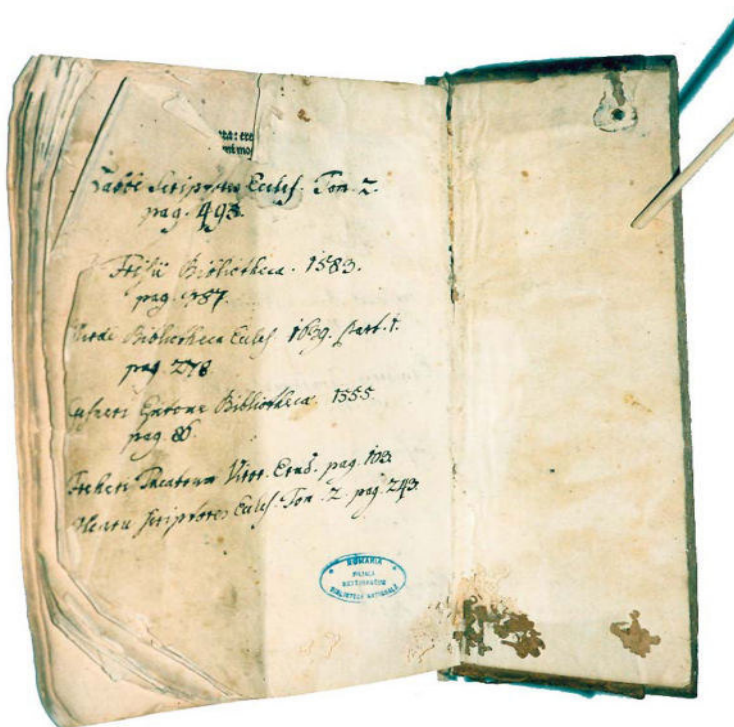 Scriptores Eccles. Tom. 2.
pag. 493.
Frisii Bibliotheca. 1583.
pag. 787.
Bibliotheca Eccles 1639. Part. 1.
pag. 278
Gesneri Epitome Bibliotheca. 1555.
pag. 86.
Freheri Theatrum Viror. Erud. pag. 103
Scriptores Eccles. Tom. 2. pag. 243.
ROMANIA
FILIALA
BIBLIOTECA NATIONALĂ